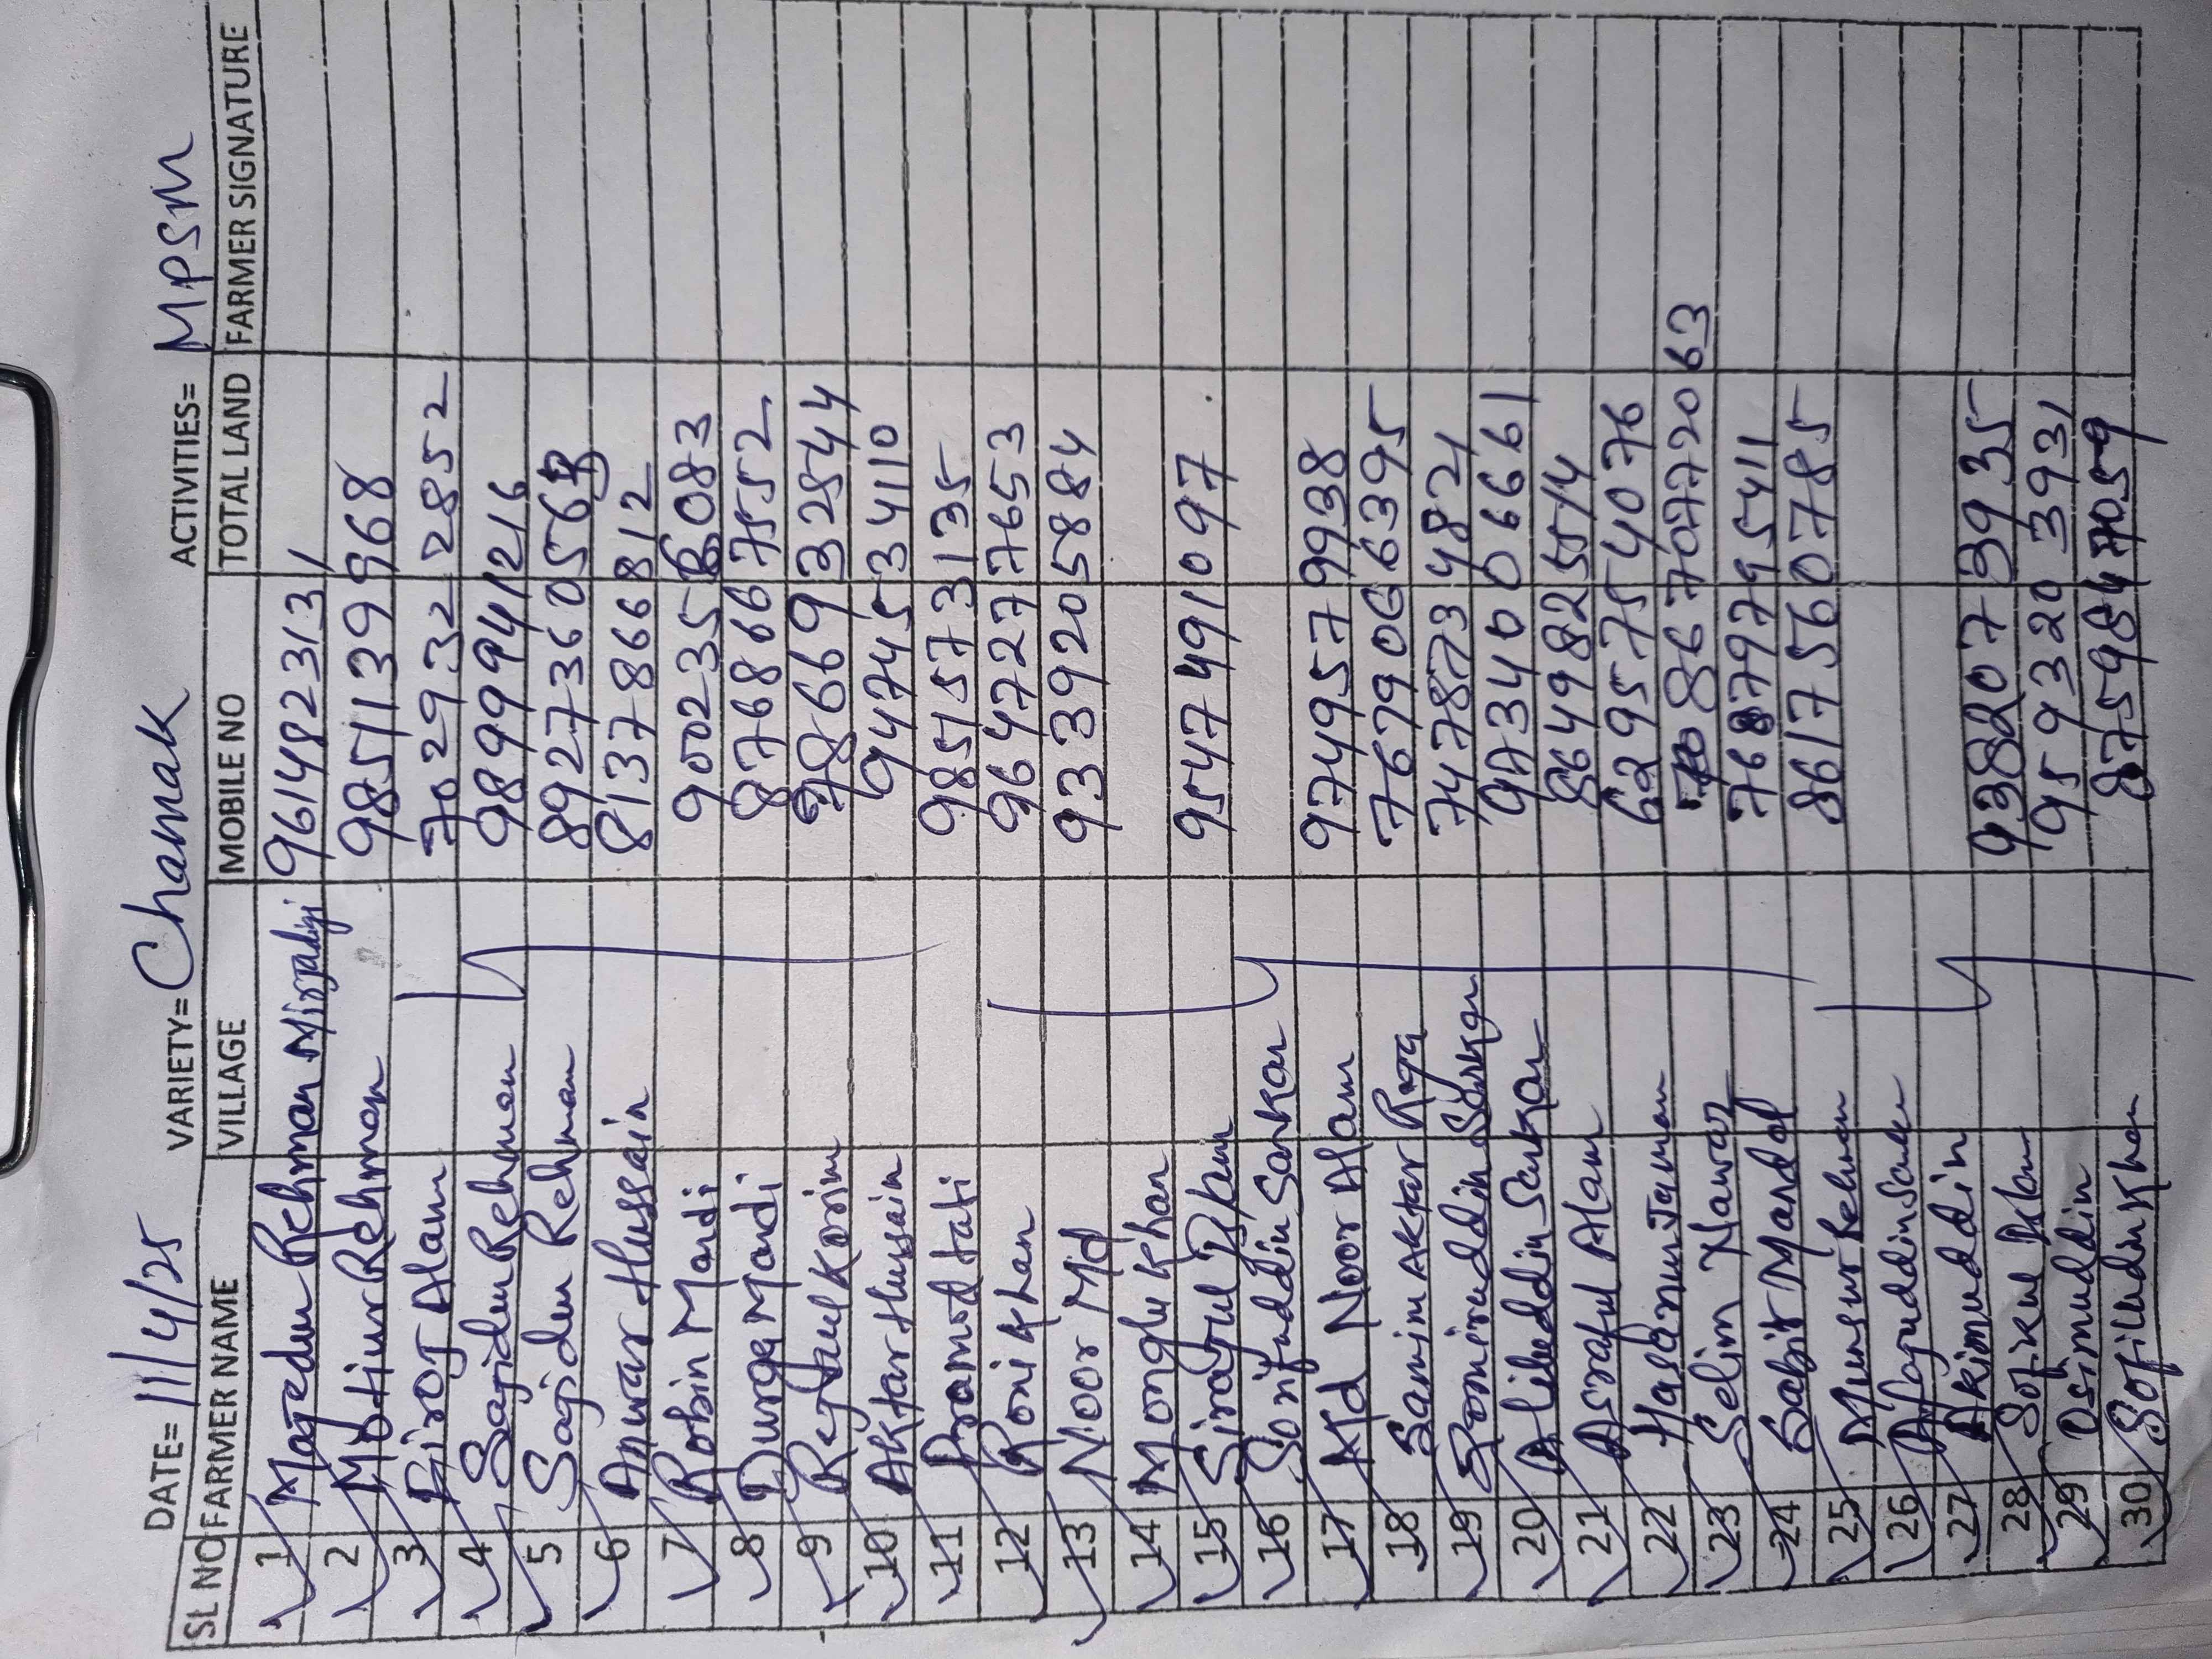 DATE= 11/4/25 VARIETY= Chamak ACTIVITIES= MPSM
SL NO FARMER NAME VILLAGE MOBILE NO TOTAL LAND FARMER SIGNATURE
1 Majedur Rehman Mirzadigi 9614823131
2 Motiur Rehman 9851139968
3 Firoj Alam 7029322852
4 Sajidur Rehman 9899941216
5 Sajidur Rehman 892736056
6 Anwar Hussain 8137866812
7 Robin Mardi 9002356083
8 Durga Mardi 8768667552
9 Rejaul Korim 9866932544
10 Aktar Hussain 9474534110
11 Pramot tati 9851573135
12 Roni Khan 9647277653
13 Noor Md 9339205884
14 Monglu Khan
15 Sirajul Islam 9547491097
16 Sorifuddin Sarkar
17 Md Noor Alam 9749579938
18 Samim Aktar Raja 7679066395
19 Somiruddin Sarkar 7478734821
20 Alibuddin Sarkar 9734006661
21 Asraful Alam 8649825514
22 Hasanur Jaman 6295754076
23 Selim Nawaz 8670772063
24 Sabir Mandal 7687975411
25 Munsur Rehman 8617560785
26 Afajuddin
27 Akimuddin
28 Sofikul Islam 9382073935
29 Osimuddin 9593203931
30 Sofiludin Khan 8759847059